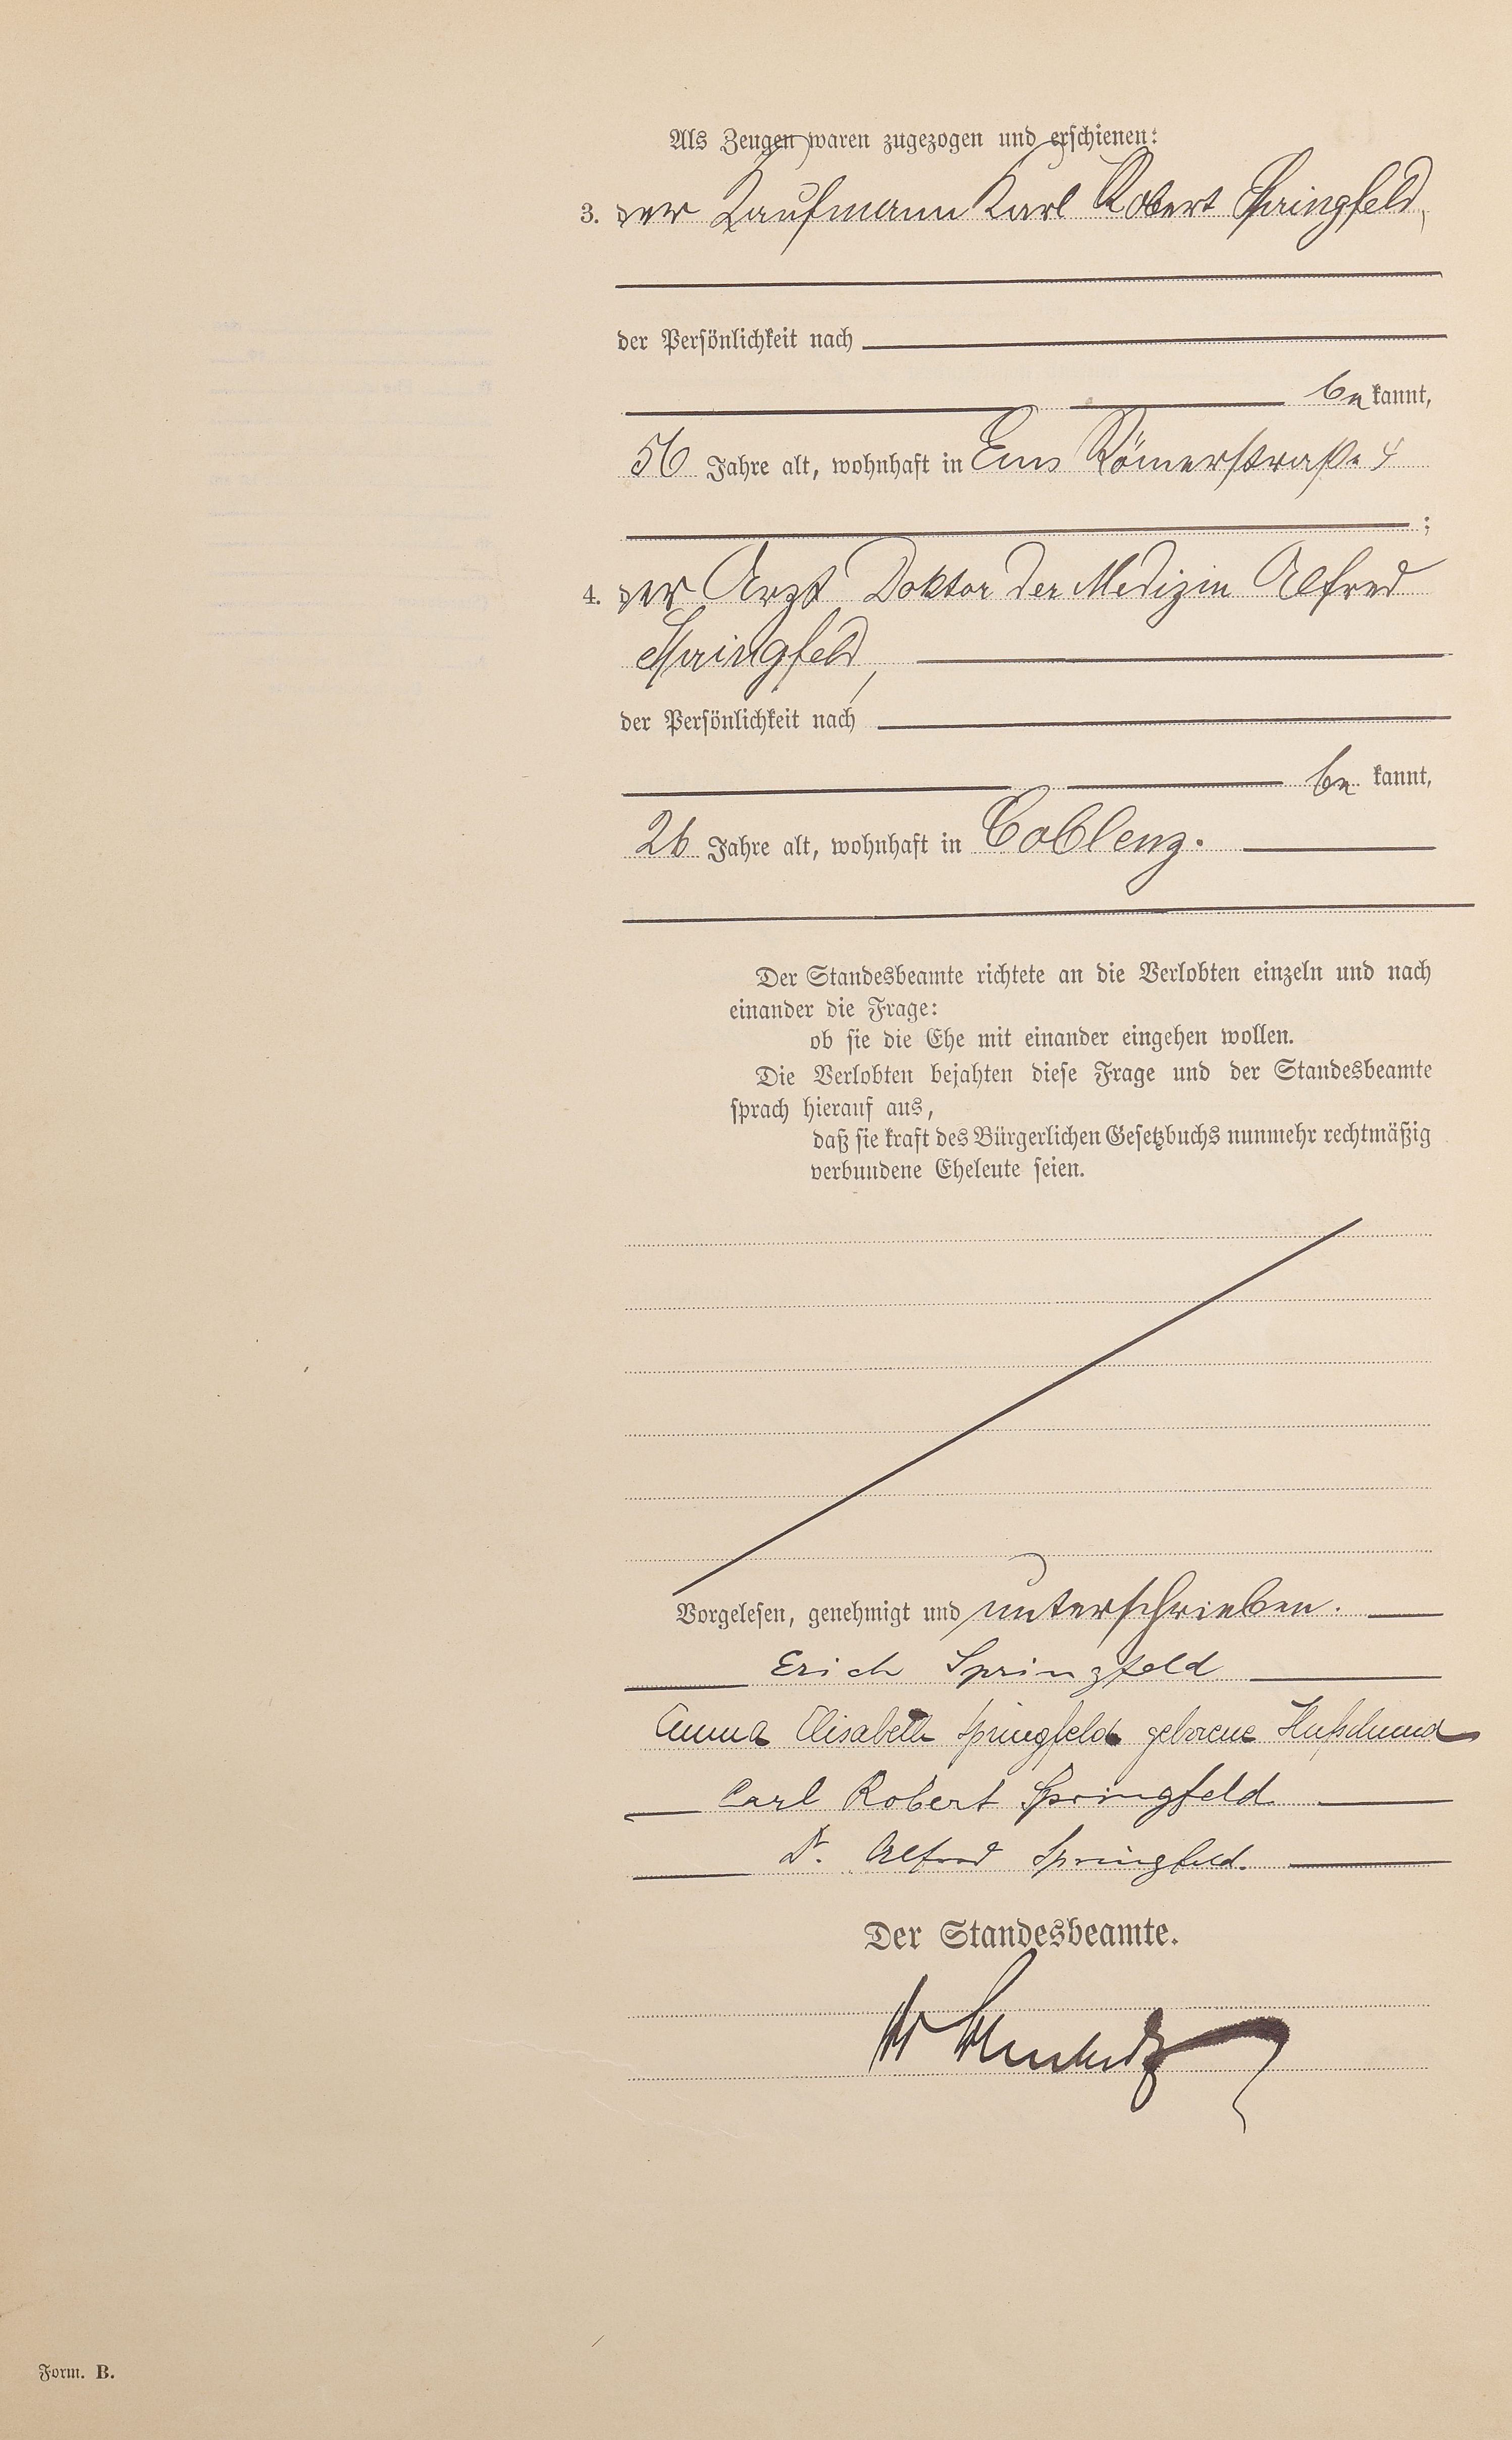 Als Zeugen waren zugezogen und erschienen:
3. der Kaufmann Karl Robert Springfeld,
der Persönlichkeit nach
be kannt,
56 Jahre alt, wohnhaft in Ems Römerstraße 4
;
4. der Arzt Doktor der Medizin Alfred
Springfeld,
der Persönlichkeit nach
be kannt,
26 Jahre alt, wohnhaft in Coblenz.
Der Standesbeamte richtete an die Verlobten einzeln und nach
einander die Frage:
ob sie die Ehe mit einander eingehen wollen.
Die Verlobten bejahten diese Frage und der Standesbeamte
sprach hierauf aus,
daß sie kraft des Bürgerlichen Gesetzbuchs nunmehr rechtmäßig
verbundene Eheleute seien.
Vorgelesen, genehmigt und unterschrieben.
Erich Springfeld
Anna Elisabeth Springfeld geborene
Carl Robert Springfeld
Dr. Alfred Springfeld.
Der Standesbeamte.
Form. B.